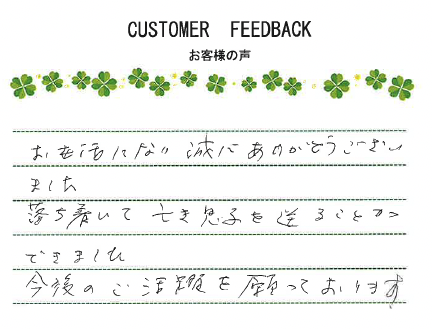 CUSTOMER FEEDBACK
お客様の声
お世話になり 誠にありがとうござい
ました
落ち着いて 亡き息子を送ることが
できました
今後のご活躍を願っております